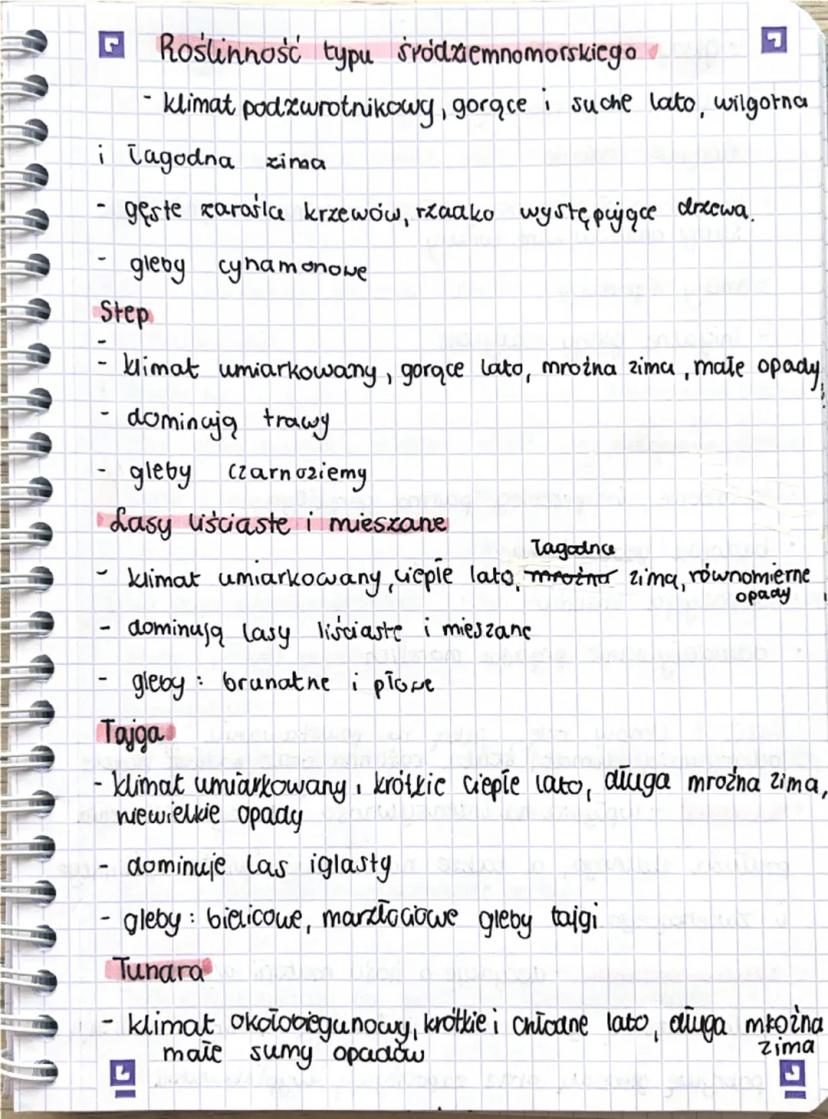 Roślinność typu śródziemnomorskiego
- klimat podzwrotnikowy, gorące i suche lato, wilgotna
i łagodna zima
- gęste zarośla krzewów, rzadko występujące drzewa.
- gleby cynamonowe
Step
-
- klimat umiarkowany, gorące lato, mroźna zima, małe opady,
- dominują trawy
- gleby czarnoziemy
Lasy liściaste i mieszane
łagodna
- klimat umiarkowany, ciepłe lato, mroźna zima, równomierne
opady
- dominują lasy liściaste i mieszane
- gleby: brunatne i płowe
Tajga
- klimat umiarkowany, krótkie ciepłe lato, długa mroźna zima,
niewielkie opady
- dominuje las iglasty
- gleby: bielicowe, marzłociowe gleby tajgi
Tundra
- klimat okołobiegunowy, krótkie i chłodne lato, długa mroźna
zima
małe sumy opadów